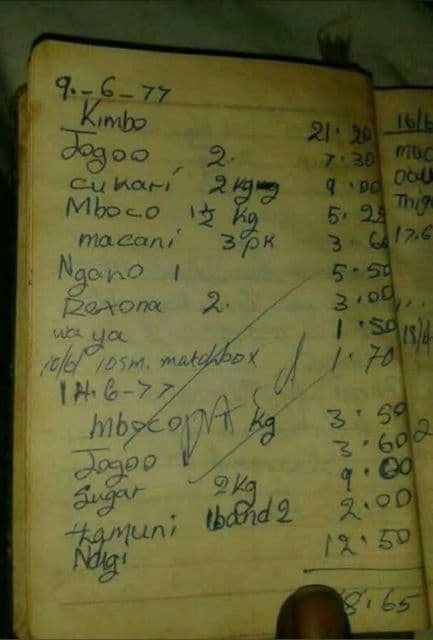 9.-6-77
Kimbo 21.20
Jogoo 2. 7.30
cukari 2kg 9.00
Mboco 1½ kg 5.25
macani 3pk 3.60
Ngano 1 5.50
Rexona 2. 3.00
waya 1.50
10/6 10sm. matchbox 1.70
14.6-77
Mboco kg 3.50
Jogoo 3.60
Sugar 2kg 9.00
1band2 2.00
Ndigi 12.50
8.65
paid
16/6
mac
Thig
17.6
18/6
2